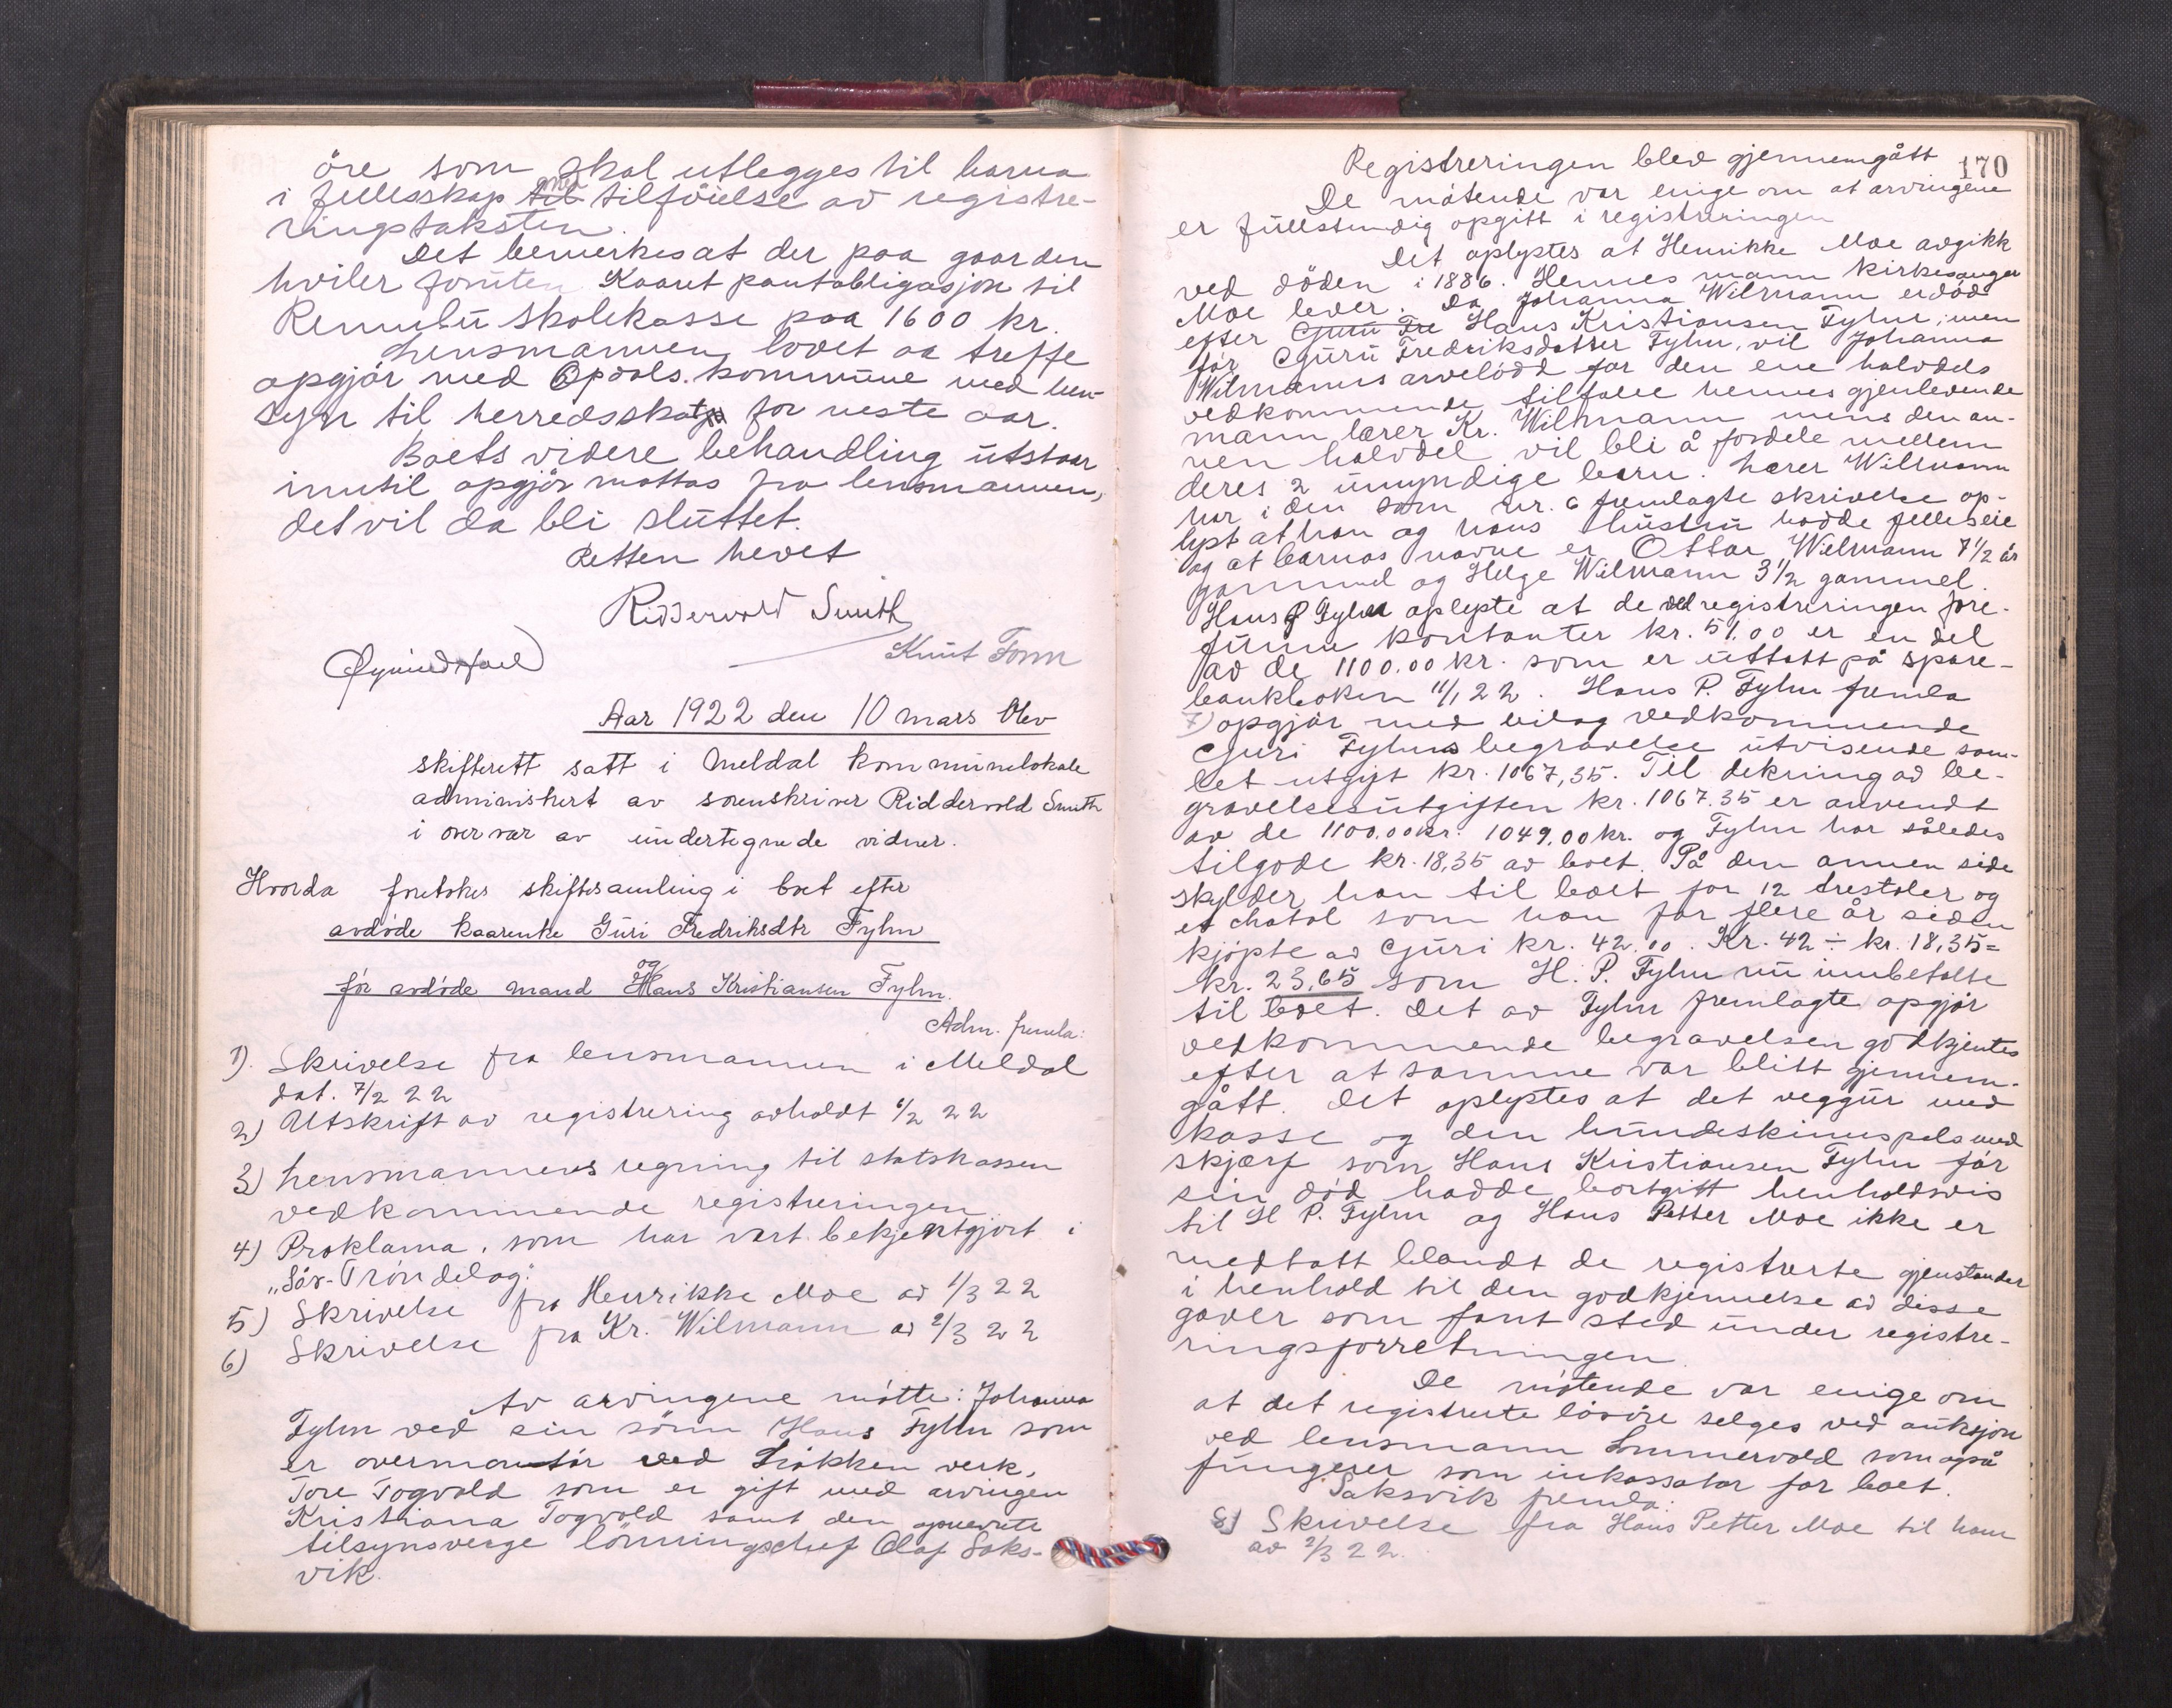 öre som skal utlegges til barna
i fellesskap til med tilföielse av registre-
ringstaksten.
Det bemerkes at der paa gaarden
hviler foruten Kaaret pantobligasjon til
Rennebu skolekasse paa 1600 kr.
Lensmannen lovet aa treffe
opgjör med Opdals kommune med hen-
syn til herredsskatt for neste aar.
Boets videre behandling utstaar
inntil opgjör mottas fra lensmannen,
det vil da bli sluttet.
Retten hevet
Riddervold Smith
Knut Form
Aar 1922 den 10 mars blev
skifterett satt i Meldal kommunelokale
administrert av sorenskriver Riddervold Smith
i overvær av undertegnede vidner.
Hvorda foretokes skiftesamling i boet efter
avdöde kaarenke Guri Fredriksdtr Fylm
og
för avdöde mand Hans Kristiansen Fylm.
Adm. fremla:
1). Skrivelse fra lensmannen i Meldal
dat. 7/2 22
2) Utskrift av registrering avholdt 6/2 22
3) Lensmannens regning til statskassen
vedkommende registreringen
4) Proklama, som har vært bekjentgjort i
"Sör-Tröndelag".
5) Skrivelse fra Henrikke Moe av 1/3 22
6) Skrivelse fra Kr. Wilmann av 2/3 22
Av arvingene mötte: Johanna
Fylm ved sin sönn Hans Fylm som
er overmontör ved Lökken verk,
Tore Fogvold som er gift med arvingen
Kristiana Fogvold samt den opnevnte
tilsynsverge lönningschef Olaf Saks-
vik.
170
Registreringen blev gjennemgått
De mötende var enige om at arvingene
er fullstendig opgitt i registreringen
Det oplystes at Henrikke Moe avgikk
ved döden i 1886. Hennes mann kirkesanger
Moe lever. Da Johanna Wilmann er död
efter Guru Fre Hans Kristiansen Fylm, men
för Guru Fredriksdatter Fylm, vil Johanna
Wilmanns arvelodd for den ene halvdels
vedkommende tilfalle hennes gjenlevende
mann lærer Kr. Wilmann mens den an-
nen halvdel vil bli å fordele mellem
deres 2 umyndige barn. Lærer Wilmann
har i den som nr. 6 fremlagte skrivelse op-
lyst at han og hans hustru hadde felleseie
og at barnas navne er Ottar Wilmann 7 1/2 år
gammel og Helge Wilmann 3 1/2 gammel.
Hans P Fylm oplyste at de ved registreringen fore-
funne kontanter kr. 51.00 er en del
av de 1100.00 kr. som er uttatt på spare-
bankboken 11/1 22. Hans P. Fylm fremla
7) opgjör med bilag vedkommende
Guri Fylms begravelse utvisende sam-
let utgift kr. 1067,35. Til dekning av be-
gravelsesutgiften kr. 1067.35 er anvendt
av de 1100.00 kr. 1049.00 kr. og Fylm har således
tilgode kr. 18,35 av boet. På den annen side
skylder han til boet for 12 trestoler og
et chatol som han for flere år siden
kjöpte av Guri kr. 42.00. Kr. 42 ÷ kr. 18,35 =
kr. 23,65 som H. P. Fylm nu innbetalte
til boet. Det av Fylm fremlagte opgjör
vedkommende begravelsen godkjentes
efter at samme var blitt gjennem-
gått. Det oplystes at det veggur med
kasse og den hundeskinnspels med
skjærf som Hans Kristiansen Fylm för
sin död hadde bortgitt henholdsvis
til H P. Fylm og Hans Petter Moe ikke er
medtatt blandt de registrerte gjenstander
i henhold til den godkjennelse av disse
gaver som fant sted under registre-
ringsforretningen.
De mötende var enige om
at det registrerte lösöre selges ved auksjon
ved lensmann Sommervold som også
fungerer som inkassator for boet.
Saksvik fremla:
8) Skrivelse fra Hans Petter Moe til ham
av 2/3 22.